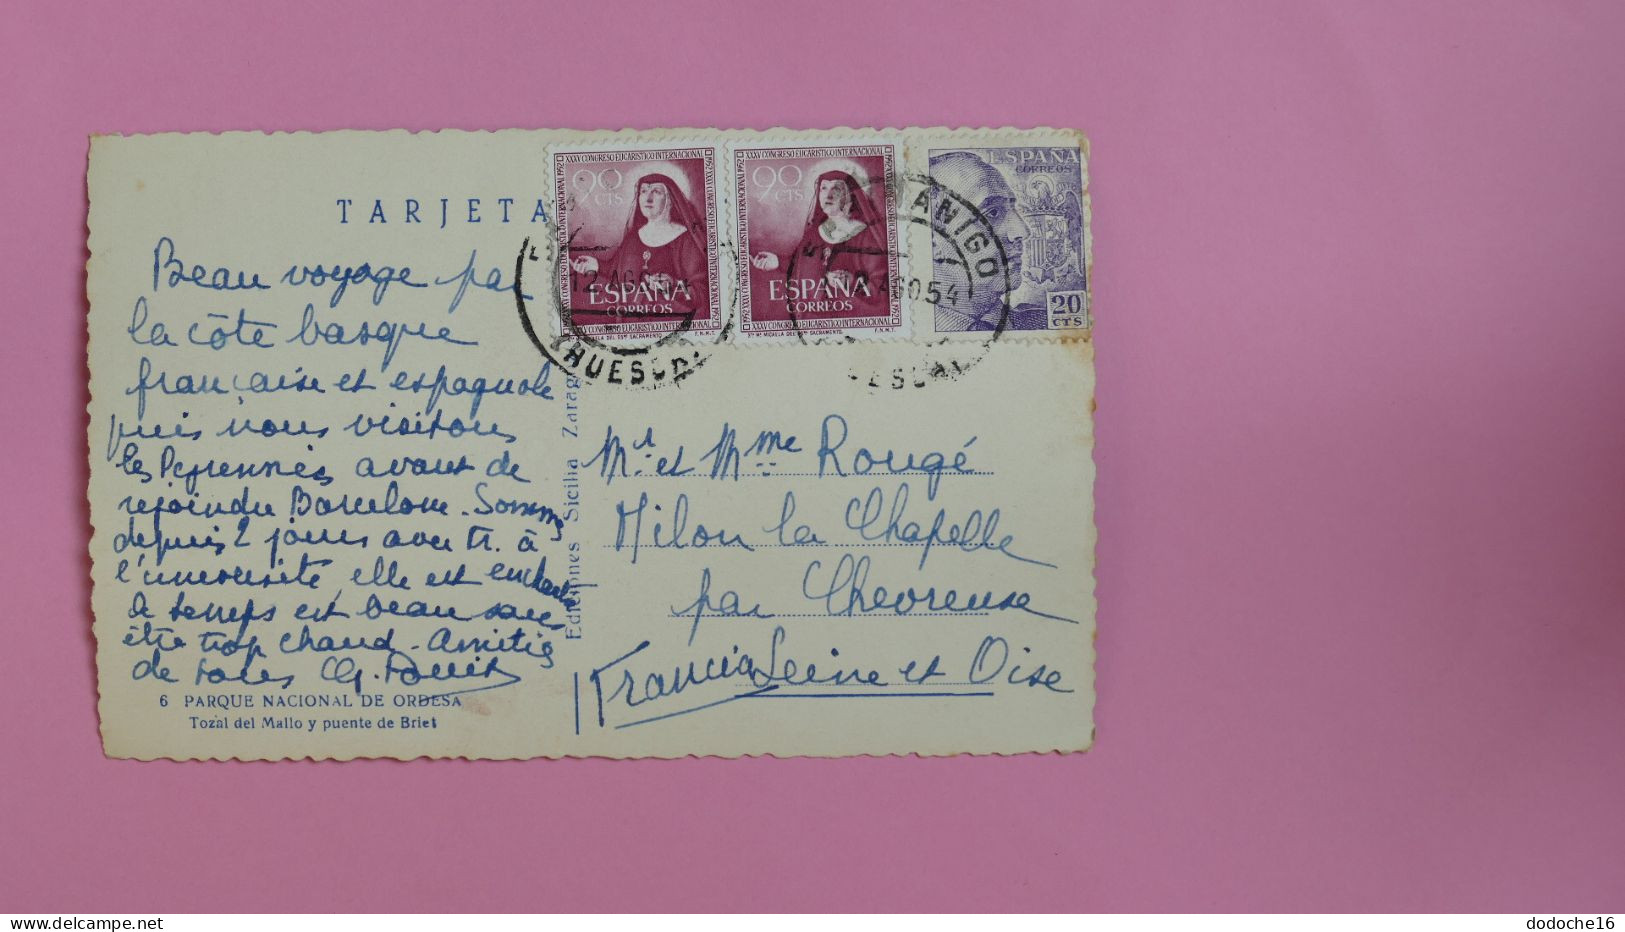 TARJETA
Beau voyage par
la côte basque
française et espagnole
puis nous visitons
les Pyrennées avant de
rejoindre Barcelone. Sommes
depuis 2 jours avec Tr. à
l'université, elle est enchantée
le temps est beau sans
être trop chaud. Amitiés
de tous
6 PARQUE NACIONAL DE ORDESA
Tozal del Mallo y puente de Briet
Ediciones Sicilia Zarag
XXXV CONGRESO EUCARISTICO INTERNACIONAL 1952
90 CTS
ESPAÑA
CORREOS
STA MICAELA DEL SSMO SACRAMENTO. F.N.M.T.
XXXV CONGRESO EUCARISTICO INTERNACIONAL 1952
90 CTS
ESPAÑA
CORREOS
STA MICAELA DEL SSMO SACRAMENTO. F.N.M.T.
ESPAÑA
CORREOS
20
CTS
12 AGO 54
(HUESCA)
ANIGO
AGO.54
Mr et Mme Rougé
Milon la Chapelle
par Chevreuse
Francia Seine et Oise
delcampe.net
dodoche16